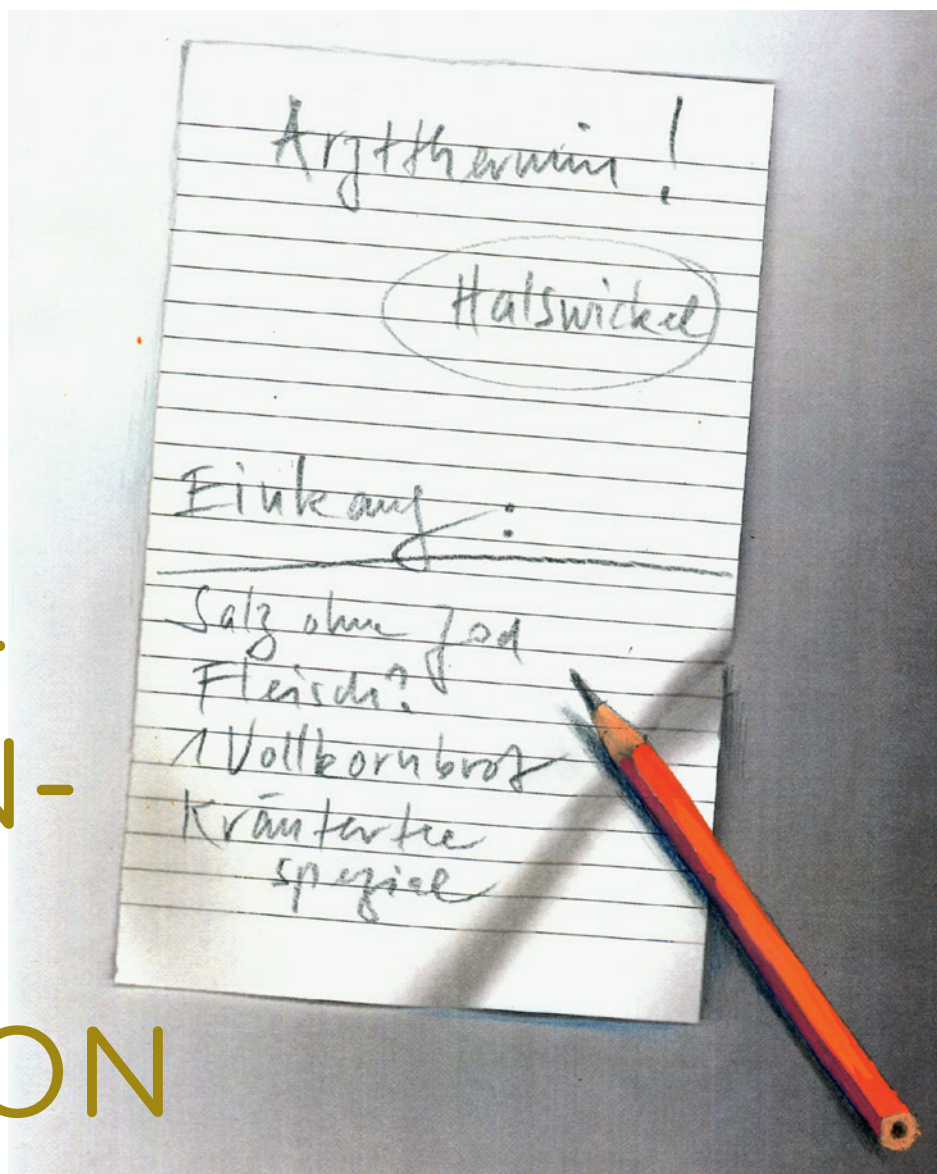 Arztthermin!
Halswickel
Einkauf:
Salz ohne Jod
Fleisch?
1 Vollkornbrot
Kräutertee
spezial
N-
ON